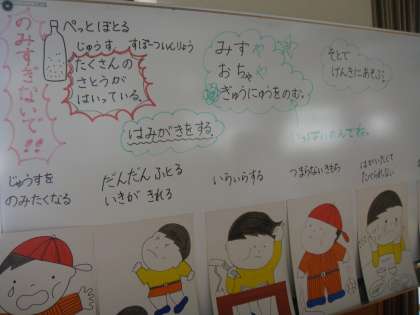 のみすぎないで!!
ぺっとぼとる
じゅうす すぽーついんりょう
たくさんの
さとうが
はいっている。
みずや
おちゃや
ぎゅうにゅうをのむ。
そとで
げんきにあそぶ。
はみがきをする。
いっぱいたんてね。
じゅうすを
のみたくなる
だんだんふとる
いきが きれる
いらいらする
つまらないきもち
はがいたくて
たべられない